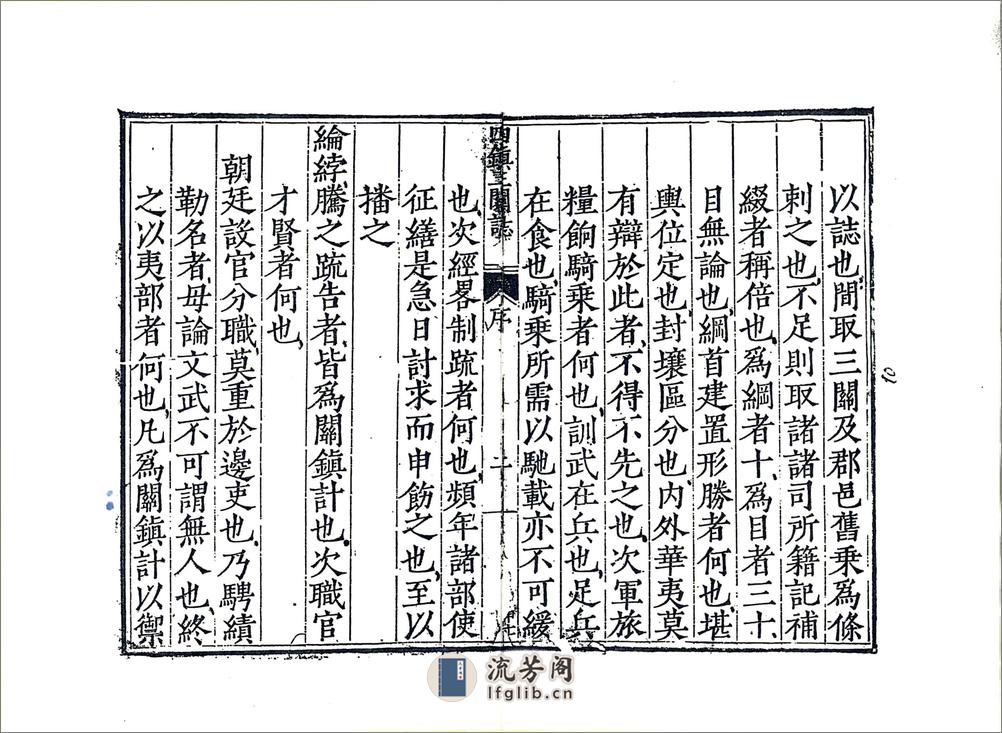 以誌也間取三關及郡邑舊乗爲條
刺之也不足則取諸諸司所籍記補
綴者稱倍也爲綱者十爲目者三十
目無論也綱首建置形勝者何也堪
輿位定也封壤區分也内外華夷莫
有辯於此者不得不先之也次軍旅
糧餉騎乗者何也訓武在兵也足兵
在食也騎乗所需以馳載亦不可緩
四鎮三關誌 序 二
也次經畧制疏者何也頻年諸部使
征繕是急日討求而申飭之也至以
播之
綸綍騰之疏告者皆爲關鎮計也次職官
才賢者何也
朝廷設官分職莫重於邊吏也乃騁績
勒名者毋論文武不可謂無人也終
之以夷部者何也凡爲關鎮計以禦
10
流芳阁
lfglib.cn